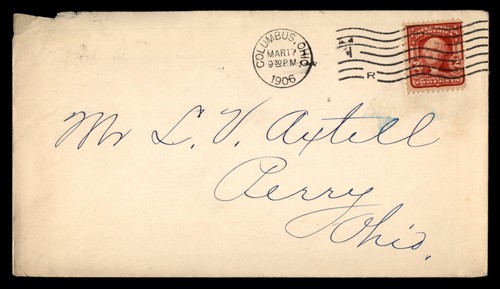 COLUMBUS, OHIO
MAR 17
9 30 P.M.
1906
R
Mr L. V. Axtell
Perry
Ohio.